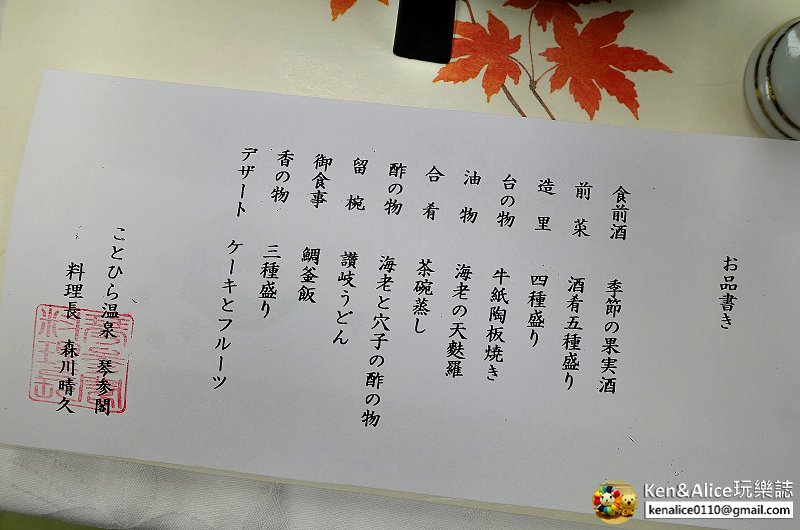 お品書き
食前酒　季節の果実酒
前菜　酒肴五種盛り
造里　四種盛り
台の物　牛紙陶板焼き
油物　海老の天麩羅
合肴　茶碗蒸し
酢の物　海老と穴子の酢の物
留椀　讃岐うどん
御食事　鯛釜飯
香の物　三種盛り
デザート　ケーキとフルーツ
ことひら温泉　琴参閣
料理長　森川晴久
Ken&Alice玩樂誌
kenalice0110@gmail.com